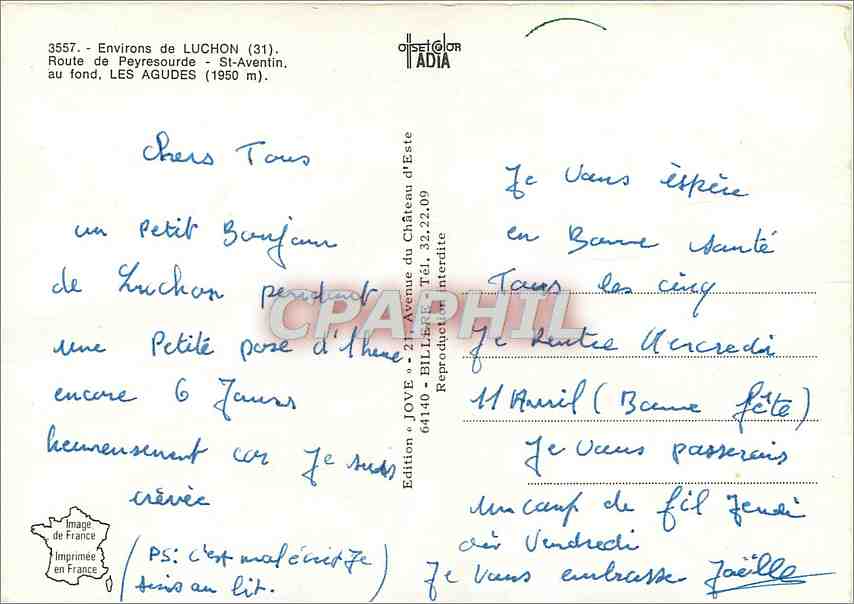 3557. - Environs de LUCHON (31).
Route de Peyresourde - St-Aventin.
au fond, LES AGUDES (1950 m).
OFFSET COLOR
ADIA
chers Tous
un Petit Bonjour
de Luchon pendant
une Petite pose d'1 heure
encore 6 Jours
heureusement car Je suis
crévée
(PS: c'est mal écrit Je
suis au lit.
Image
de France
Imprimée
en France
Edition « JOVE » - 21, Avenue du Château d'Este
64140 - BILLERE - Tél. 32.22.09
Reproduction interdite
Je Vous éspère
en Bonne santé
Tous les cinq
Je Rentre Mercredi
11 Avril (Bonne fête)
Je Vous passerais
un coup de fil Jeudi
où Vendredi
Je Vous embrasse Joëlle
CPAPHIL